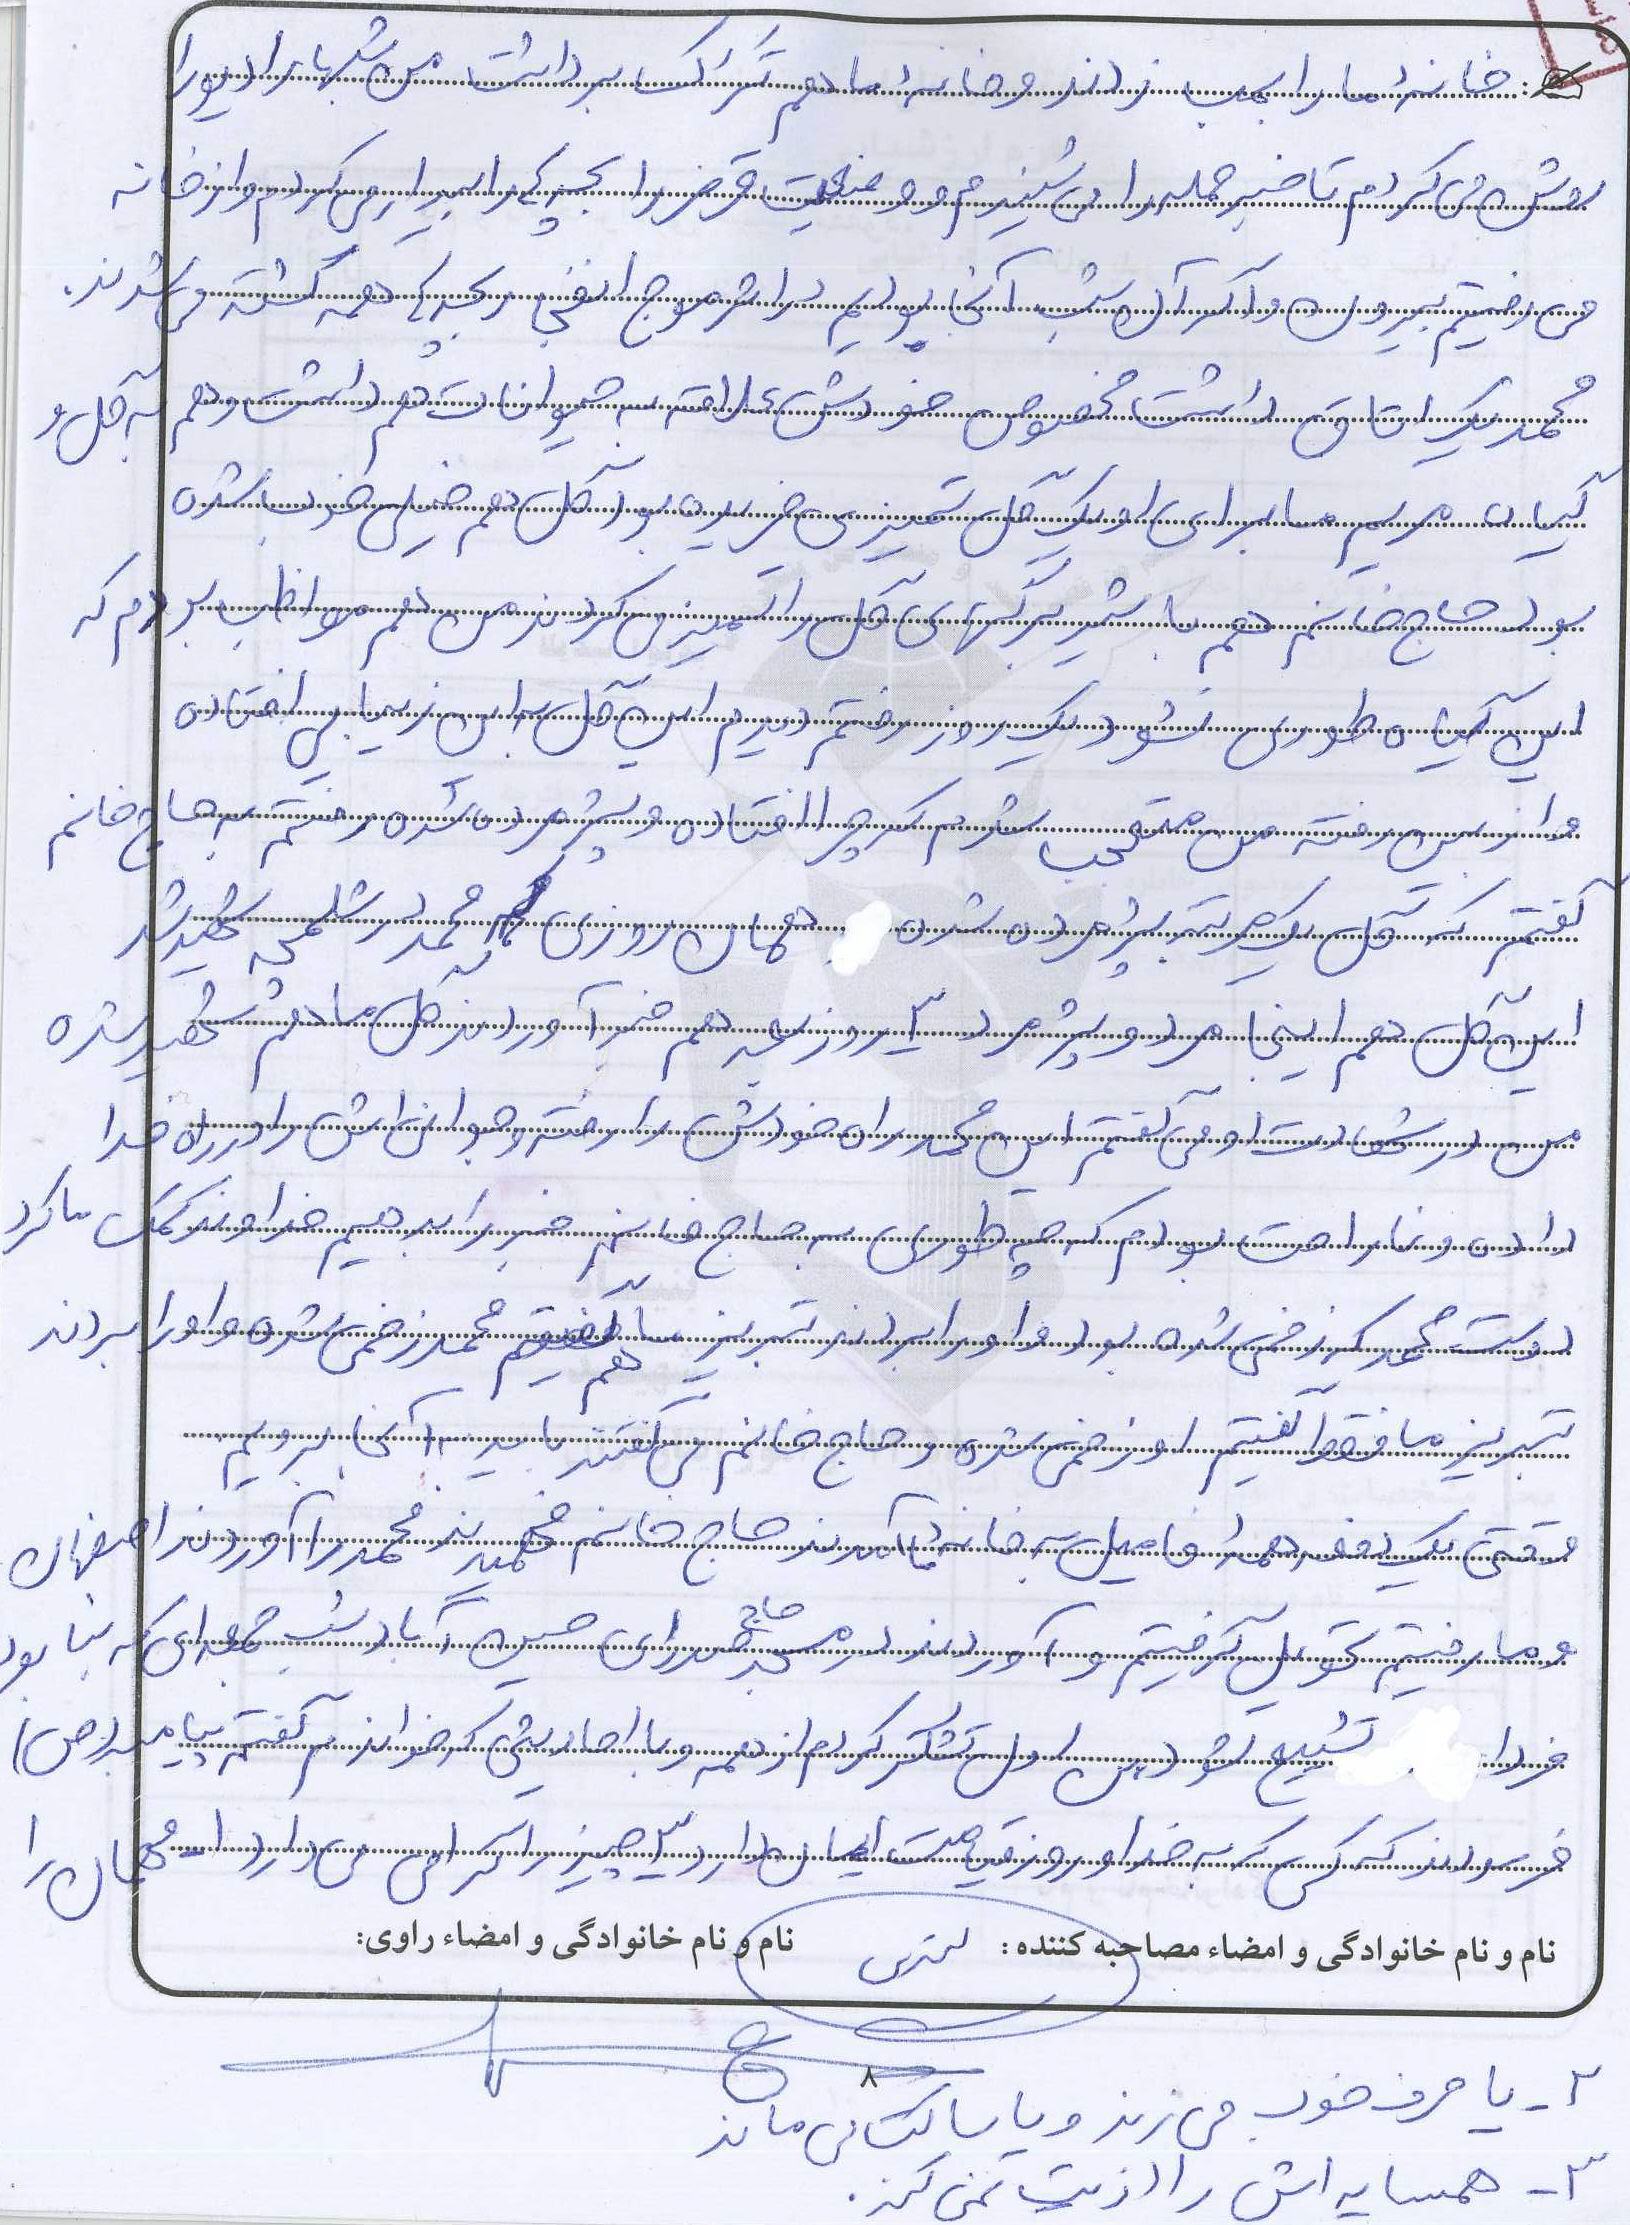 خانه ما را بمب زدند و خانه ما هم ترک برداشت من شبها رادیو را
روشن می کردم تا خبر حمله را می شنیدم و وضعیت قرمز را بچه ها را بیدار می کردم و از خانه
می رفتیم بیرون و اگر آن شب آنجا بودیم در اثر موج انفجار بچه ها همه کشته می شدند.
محمد یک اتاق داشت مخصوص خودش علاقه به حیوانات هم داشت و هم به گل و
گیاه مریم ما برای او یک گل تمیزی خریده بود گل هم خیلی خوب شده
بود حاج خانم هم با شیر برگهای گل را تمیز می کردند من هم مواظب بودم که
این گیاه طوری نشود یک روز رفتم دیدم این گل به این زیبایی افتاده
و از بین رفته من متعجب شدم که چرا افتاده و پژمرده شده رفتم به حاج خانم
گفتم که گل یک مرتبه پژمرده شده همان روزی که محمد در شلمچه شهید شد
این گل هم اینجا مرد و پژمرد ۲ روز بعد هم خبر آوردند گل ما هم شهید شده
من در شهادت او می گفتم این محمد راه خودش را رفته و جوانی اش را در راه خدا
داده و ناراحت بودم که چه طوری به حاج خانم خبر را بدهیم خداوند کمک ما کرد
دوست محمد که زخمی شده بود و او را بردند تبریز ما هم گفتیم محمد زخمی شده و او را بردند
تبریز ما فقط گفتیم او زخمی شده و حاج خانم می گفتند باید به آنجا برویم
وقتی یک دفعه همه فامیل به خانه ما آمدند حاج خانم فهمیدند محمد را آوردند اصفهان
و ما رفتیم تحویل گرفتیم و آوردند در مسجد حاج رای حسین آباد شب جمعه ای که بنا بود
فردا تشییع شود من اول تشکر کردم از همه و با احادیثی که خواندم گفتم پیامبر (ص)
فرمودند که کسی که به خدا و روز قیامت ایمان دارد ۳ چیز را گرامی می دارد ۱- مهمان را
نام و نام خانوادگی و امضاء مصاحبه کننده : نام و نام خانوادگی و امضاء راوی:
۸
۲- یا حرف خوب می زند و یا ساکت می ماند
۳- همسایه اش را اذیت نمی کند.